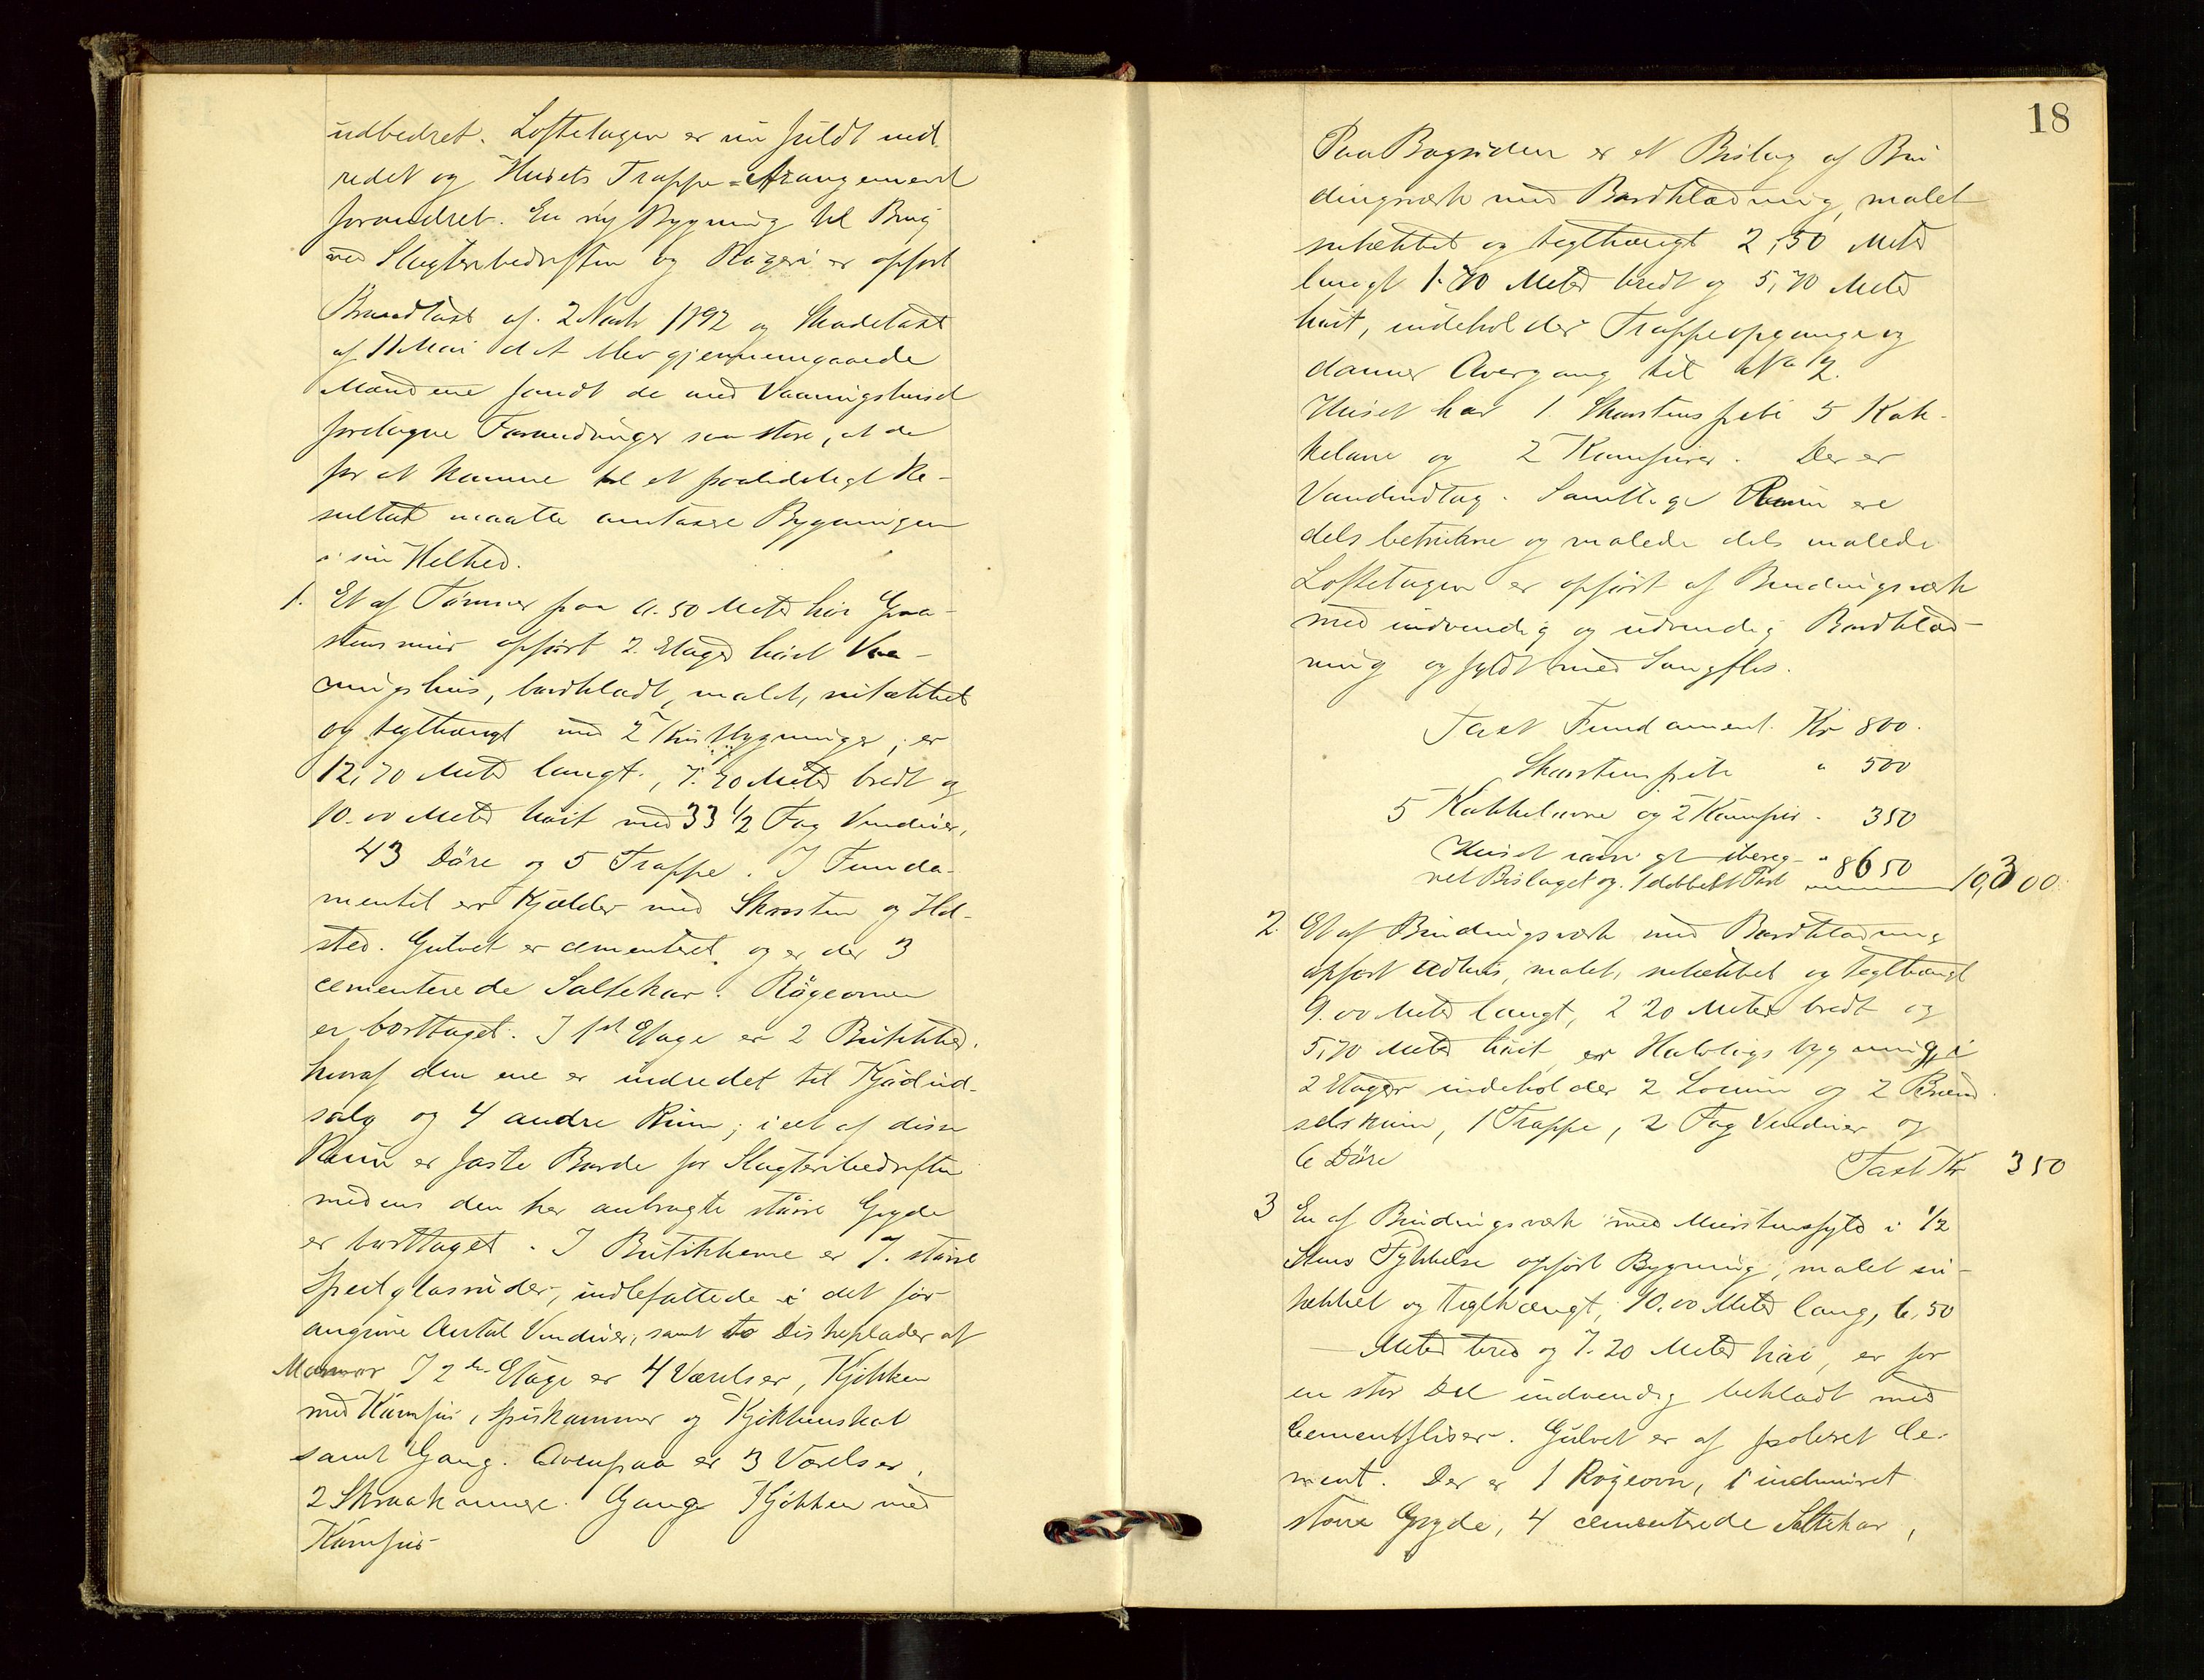 udbedret. Loftetagen er nu fuldt ind-
redet og Husets Trappe-Arangement
forandret. En ny Bygning til Brug
ved Slagteribedriften og Røgeri er opført
Brandtaxt af 2 Novb 1892 og Skadetaxt
af 11 Mai d A blev gjennemgaaede
Mændene fandt de med Vaaningshuset
foretagne Forandringer saa store, at de
for at komme til et paalideligt Re-
sultat maatte omtaxere Bygningen
i sin Helhed.
1. Et af Tømmer paa 0.50 Meter høi Graa-
stens mur opført 2 Etager høit Vaa-
ningshus, bordklædt, malet, sutækket
og teglhængt med 2 Kvistbygninger, er
12,70 Meter langt, 7.70 Meter bredt og
10.00 Meter høit med 33 1/2 Fag Vinduer,
43 Døre og 5 Trappe. I Funda-
mentet er Kjælder med Skorsten og Ild-
sted. Gulvet er cementeret og er der 3
cementerede Saltekar. Røgeovnen
er borttaget. I 1st Etage er 2 Butikker,
hvoraf den ene er indredet til Kjødud-
salg og 4 andre Rum; i et af disse
Rum er faste Borde for Slagteribedriften
medens den her anbragte større Gryde
er borttaget. I Butikkerne er 7. større
Speilglasruder, indbefattede i det før
angivne Antal Vinduer, samt to Diskeplader af
Marmor I 2den Etage er 4 Værelser, Kjøkken
med Kamfur, Spiskammer og Kjøkkenskab
samt Gang. Ovenpaa er 3 Værelser,
2 Skraakamere. Gange Kjøkken med
Kamfur
18
Paa Bagsiden er et Bislag af Bin
dingsværk med Bordklædning, malet
sutækket og teglhængt 2,50 Meter
langt 1.70 Meter bredt og 5,70 Meter
høit, indeholder Trappeopgange og
danner Overgang til No 2.
Huset har 1 Skorstenspibe 5 Kak-
kelovne og 2 Kamfurer. Der er
Vandindtag. Samtlige Rum ere
dels betrukne og malede dels malede
Loftetagen er opført af Bindingsværk
med indvendig og udvendig Bordklæd-
ning og fyldt med Saugflis.
Taxt Fundament. Kr 800.
Skorstenspibe " 500
5 Kakkelovne og 2 Kamfur " 350
Huset iøvrigt ibereg- " 8650
net Bislaget og 1 dobbelt Port 10,300
2. Et af Bindingsværk med Bordklædning
opført Udhus, malet, sutækket og Teglhængt
9.00 Meter langt, 2 20 Meter bredt og
5,70 Meter høit, er Halvtagsbygning, i
2 Etager indeholder 2 Locum og 2 Brænd
selsrum, 1 Trappe, 2 Fag Vinduer og
6 Døre Taxt Kr 350
3 En af Bindingsværk med Murstensfyld i 1/2
Stens Tykkelse opført Bygning, malet su-
tækket og teglhængt, 10.00 Meter lang, 6,50
Meter bred og 7.20 Meter høi, er for
en stor Del indvendig beklædt med
Cementfliser. Gulvet er af poleret Ce-
ment. Der er 1 Røgeovn, 1 indmuret
større Gryde, 4 cementerede Saltekar,